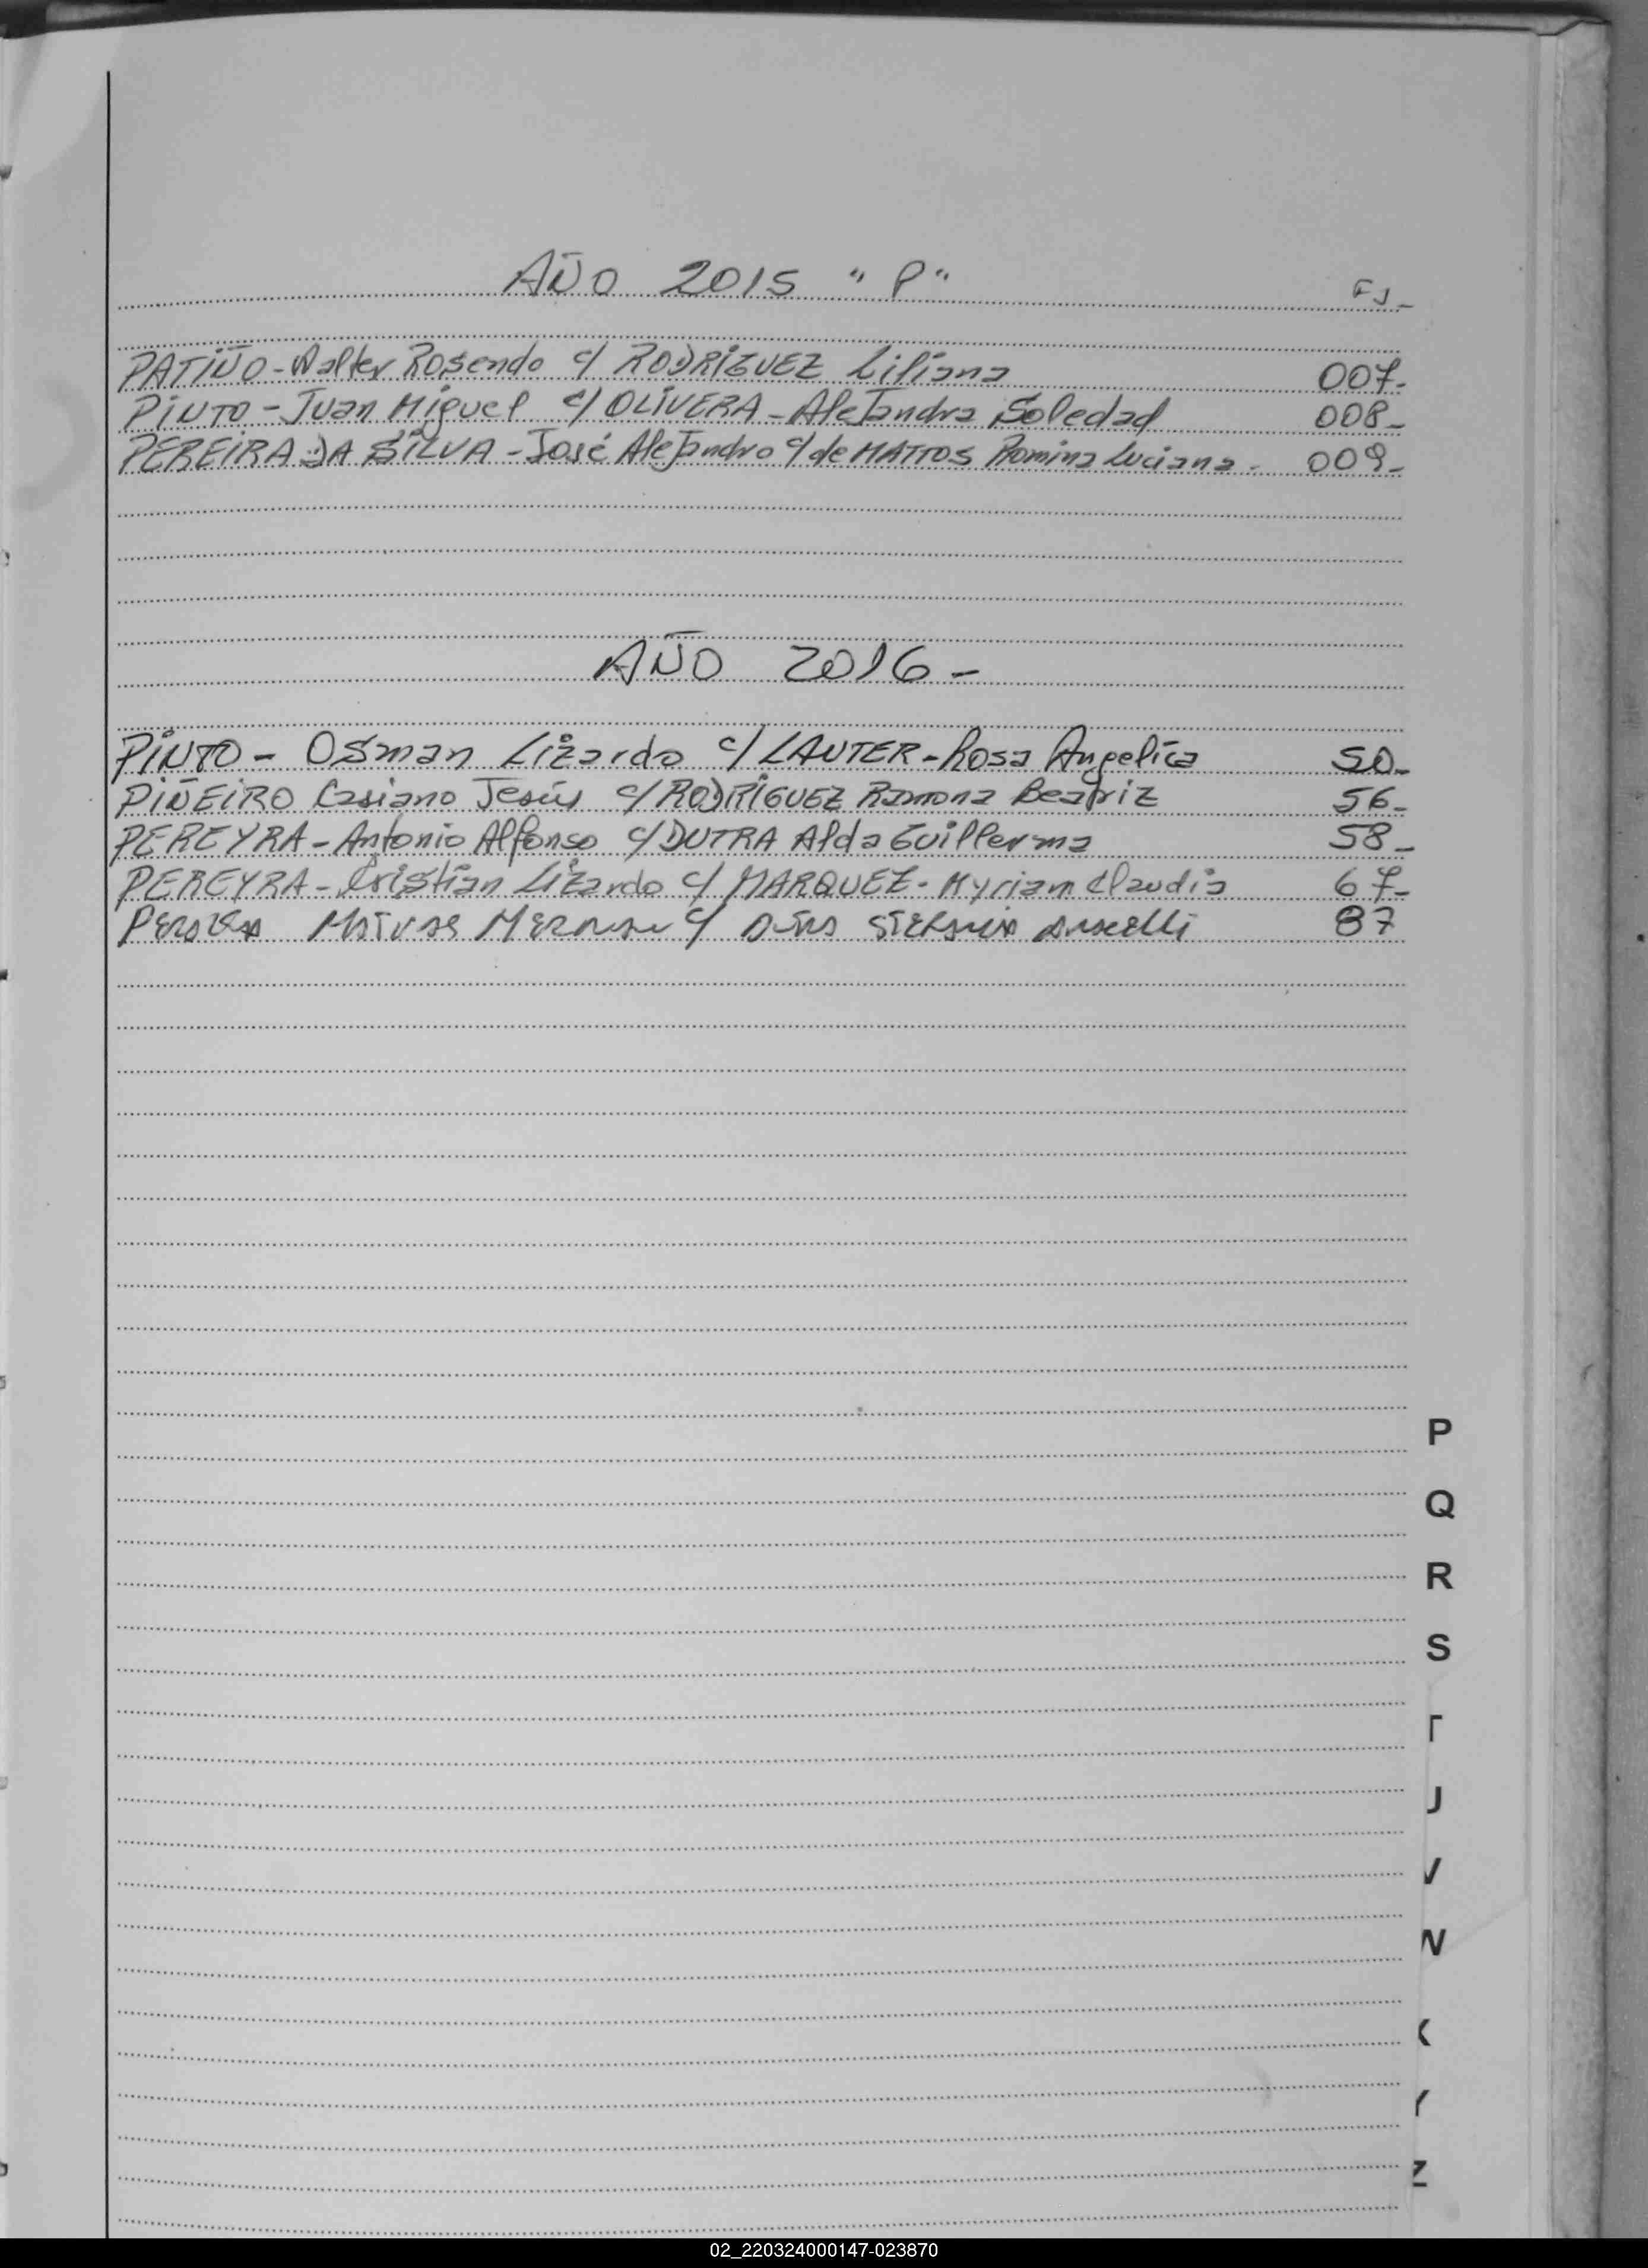 AÑO 2015 "P" FJ-
PATIÑO - Walter Rosendo c/ RODRIGUEZ Liliana 007-
PINTO - Juan Miguel c/ OLIVERA - Alejandra Soledad 008-
PEREIRA DA SILVA - José Alejandro c/ de MATTOS Romina Luciana - 009-
AÑO 2016 -
PINTO - Osman Lizardo c/ LAUTER - Rosa Angelica 50-
PIÑEIRO Casiano Jesús c/ RODRIGUEZ Ramona Beatriz 56-
PEREYRA - Antonio Alfonso c/ DUTRA Alda Guillerma 58-
PEREYRA - Cristian Lizardo c/ MARQUEZ - Myriam Claudia 67-
c/ 87
P
Q
R
S
T
U
V
W
X
Y
Z
02_220324000147-023870